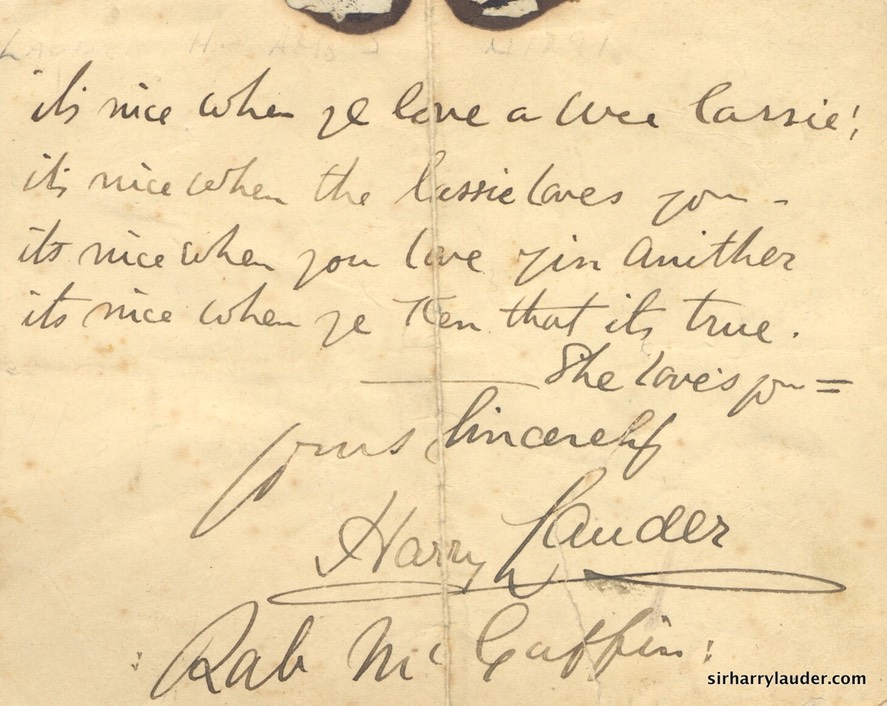 it's nice when ye love a wee lassie!
it's nice when the lassie loves you -
its nice when you love yin anither
its nice when ye Ken that its true.
She love's you =
yours Sincerely
Harry Lauder
: Rab Mc Guffin :
sirharrylauder.com